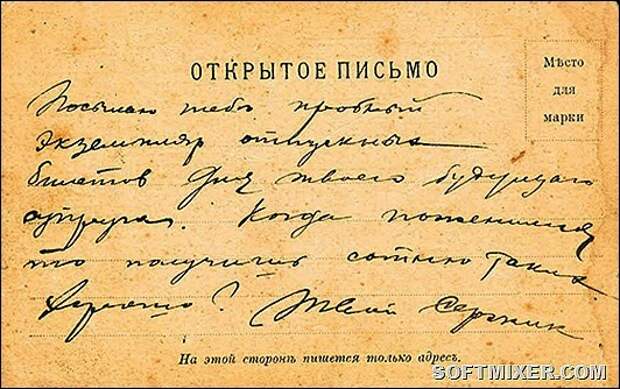 ОТКРЫТОЕ ПИСЬМО
Мѣсто
для
марки
Посылаю тебѣ пробный
экземпляр отпускных
билетов для твоего будущаго
супруга. Когда поженимся,
то получишь сотню таких
Хорошо? Твой Сергунчик
На этой сторонѣ пишется только адресъ.
SOFTMIXER.COM